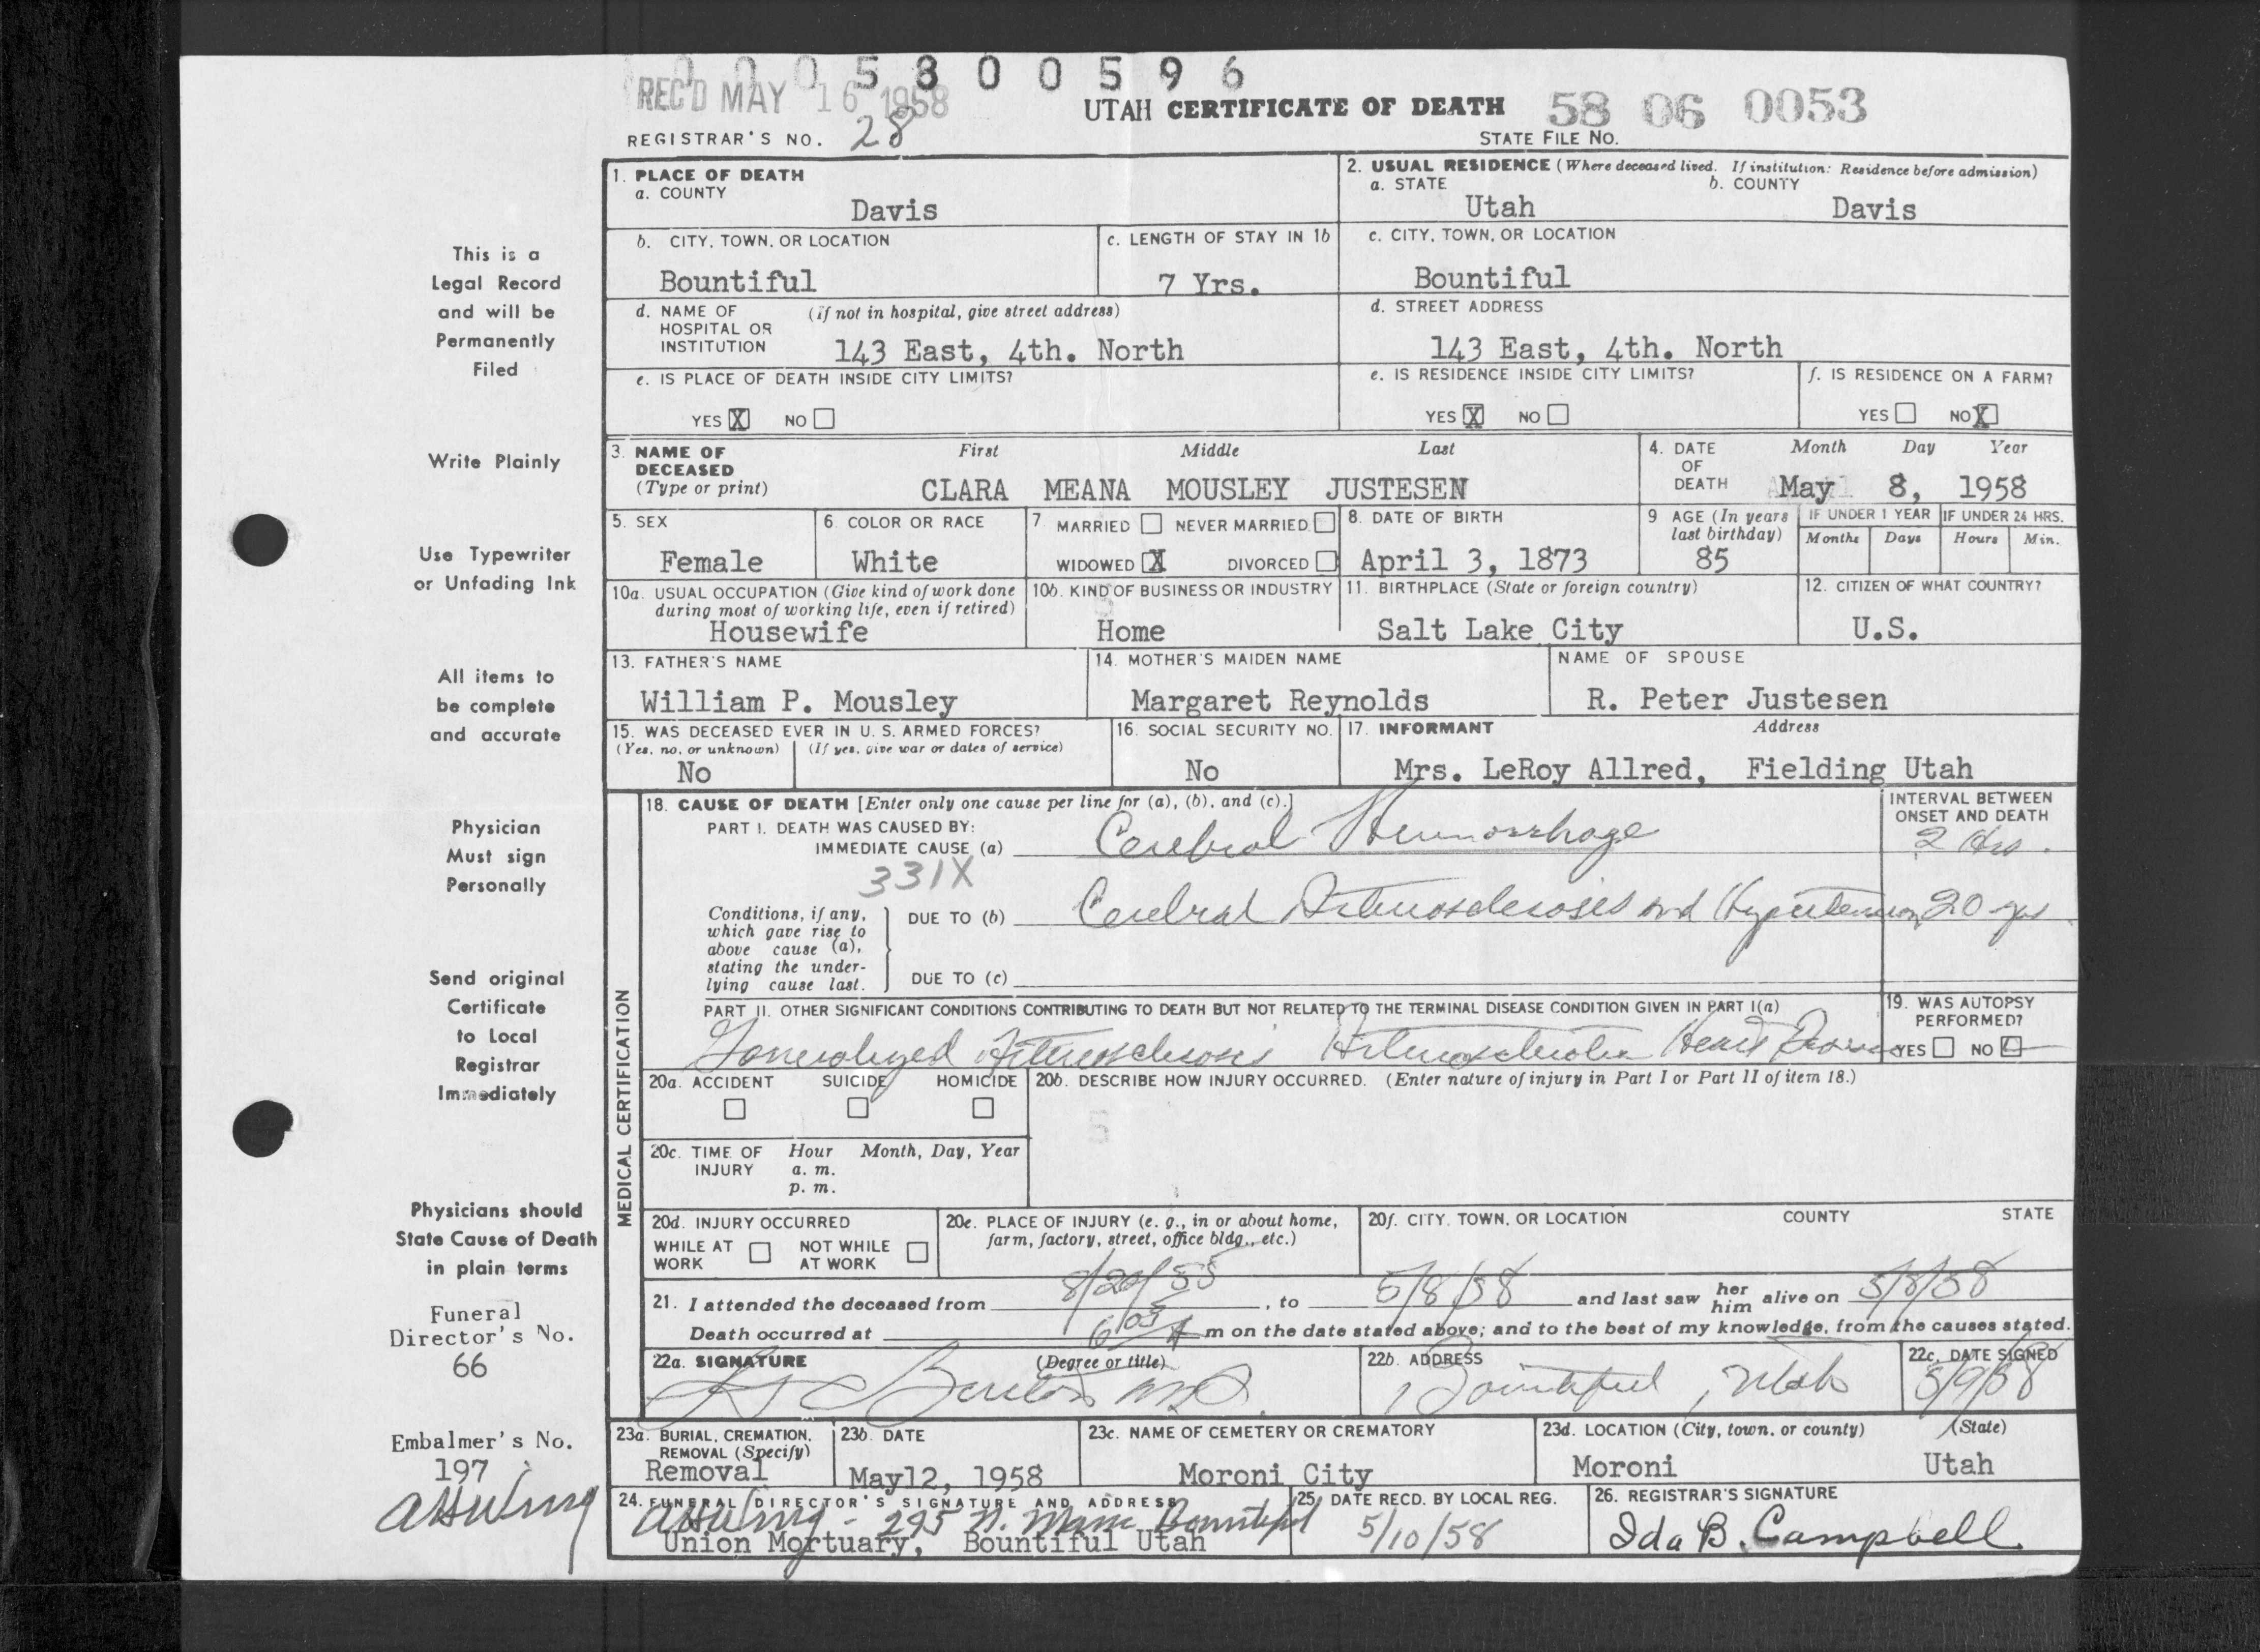 0 0 0 5 8 0 0 5 9 6
REC'D MAY 16 1958
UTAH CERTIFICATE OF DEATH 58 06 0053
REGISTRAR'S NO. 28
STATE FILE NO.
1. PLACE OF DEATH
a. COUNTY
Davis
2. USUAL RESIDENCE (Where deceased lived. If institution: Residence before admission)
a. STATE b. COUNTY
Utah Davis
b. CITY, TOWN, OR LOCATION
Bountiful
c. LENGTH OF STAY IN 1b
7 Yrs.
c. CITY, TOWN, OR LOCATION
Bountiful
d. NAME OF (if not in hospital, give street address)
HOSPITAL OR
INSTITUTION 143 East, 4th. North
d. STREET ADDRESS
143 East, 4th. North
e. IS PLACE OF DEATH INSIDE CITY LIMITS?
YES X NO
e. IS RESIDENCE INSIDE CITY LIMITS?
YES X NO
f. IS RESIDENCE ON A FARM?
YES NO X
3. NAME OF First Middle Last
DECEASED
(Type or print) CLARA MEANA MOUSLEY JUSTESEN
4. DATE Month Day Year
OF
DEATH May 8, 1958
5. SEX
Female
6. COLOR OR RACE
White
7. MARRIED NEVER MARRIED
WIDOWED X DIVORCED
8. DATE OF BIRTH
April 3, 1873
9 AGE (In years
last birthday)
85
IF UNDER 1 YEAR IF UNDER 24 HRS.
Months Days Hours Min.
10a. USUAL OCCUPATION (Give kind of work done
during most of working life, even if retired)
Housewife
10b. KIND OF BUSINESS OR INDUSTRY
Home
11. BIRTHPLACE (State or foreign country)
Salt Lake City
12. CITIZEN OF WHAT COUNTRY?
U.S.
13. FATHER'S NAME
William P. Mousley
14. MOTHER'S MAIDEN NAME
Margaret Reynolds
NAME OF SPOUSE
R. Peter Justesen
15. WAS DECEASED EVER IN U. S. ARMED FORCES?
(Yes, no, or unknown) (If yes, give war or dates of service)
No
16. SOCIAL SECURITY NO.
No
17. INFORMANT Address
Mrs. LeRoy Allred, Fielding Utah
MEDICAL CERTIFICATION
18. CAUSE OF DEATH [Enter only one cause per line for (a), (b), and (c).]
PART I. DEATH WAS CAUSED BY:
IMMEDIATE CAUSE (a) Cerebral Hemorrhage
331X
INTERVAL BETWEEN
ONSET AND DEATH
2 Hrs.
Conditions, if any,
which gave rise to
above cause (a),
stating the under-
lying cause last.
DUE TO (b) Cerebral Arteriosclerosis and Hypertension 20 yrs
DUE TO (c)
PART II. OTHER SIGNIFICANT CONDITIONS CONTRIBUTING TO DEATH BUT NOT RELATED TO THE TERMINAL DISEASE CONDITION GIVEN IN PART I(a)
Generalized Arteriosclerosis Arteriosclerotic Heart Disease
19. WAS AUTOPSY
PERFORMED?
YES NO
20a. ACCIDENT SUICIDE HOMICIDE
20b. DESCRIBE HOW INJURY OCCURRED. (Enter nature of injury in Part I or Part II of item 18.)
20c. TIME OF Hour Month, Day, Year
INJURY a. m.
p. m.
20d. INJURY OCCURRED
WHILE AT NOT WHILE
WORK AT WORK
20e. PLACE OF INJURY (e. g., in or about home,
farm, factory, street, office bldg., etc.)
20f. CITY, TOWN, OR LOCATION COUNTY STATE
21. I attended the deceased from 8/20/55, to 5/8/58 and last saw her him alive on 5/8/58
Death occurred at 6 05 A m on the date stated above; and to the best of my knowledge, from the causes stated.
22a. SIGNATURE (Degree or title)
M.D.
22b. ADDRESS
Bountiful, Utah
22c. DATE SIGNED
5/9/58
23a. BURIAL, CREMATION,
REMOVAL (Specify)
Removal
23b. DATE
May12, 1958
23c. NAME OF CEMETERY OR CREMATORY
Moroni City
23d. LOCATION (City, town, or county) (State)
Moroni Utah
24. FUNERAL DIRECTOR'S SIGNATURE AND ADDRESS
- 295 N. Main Bountiful
Union Mortuary, Bountiful Utah
25. DATE RECD. BY LOCAL REG.
5/10/58
26. REGISTRAR'S SIGNATURE
Ida B. Campbell
This is a
Legal Record
and will be
Permanently
Filed
Write Plainly
Use Typewriter
or Unfading Ink
All items to
be complete
and accurate
Physician
Must sign
Personally
Send original
Certificate
to Local
Registrar
Immediately
Physicians should
State Cause of Death
in plain terms
Funeral
Director's No.
66
Embalmer's No.
197